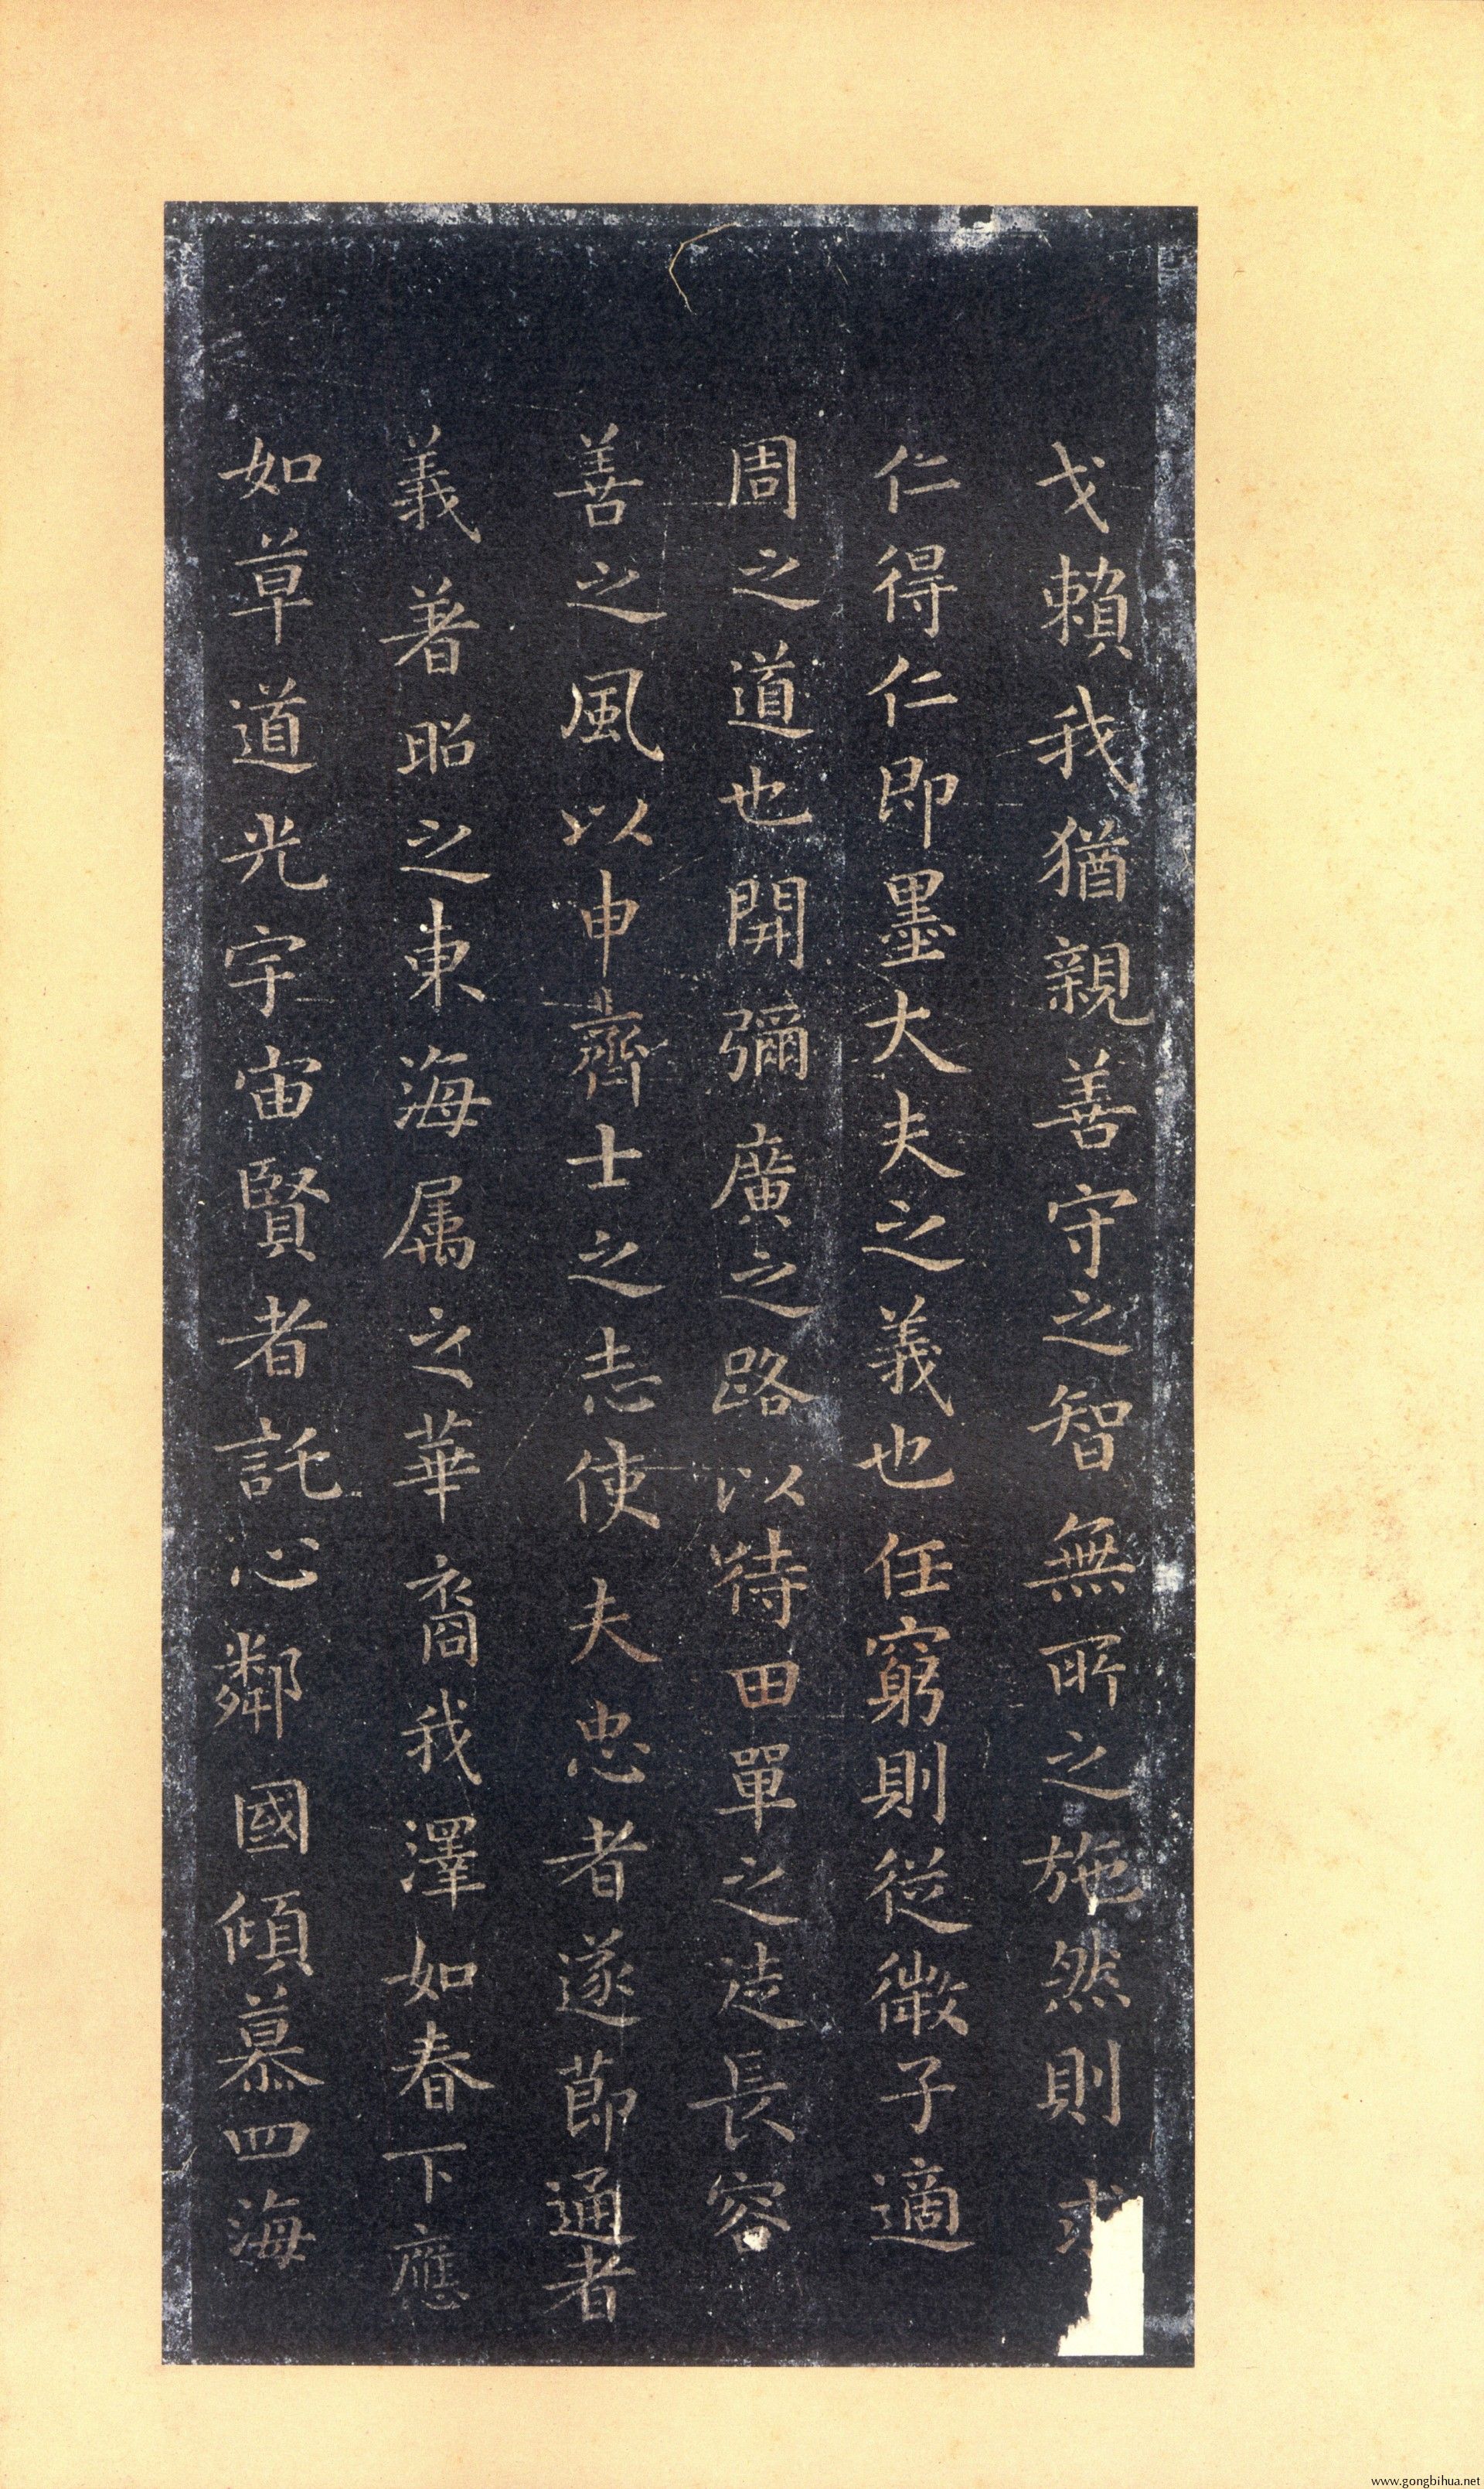 戈賴我猶親善守之智無所之施然則求
仁得仁即墨大夫之義也任窮則從微子適
周之道也開彌廣之路以待田單之徒長容
善之風以申齊士之志使夫忠者遂節通者
義著昭之東海属之華裔我澤如春下應
如草道光宇宙賢者託心鄰國傾慕四海
www.gongbihua.net